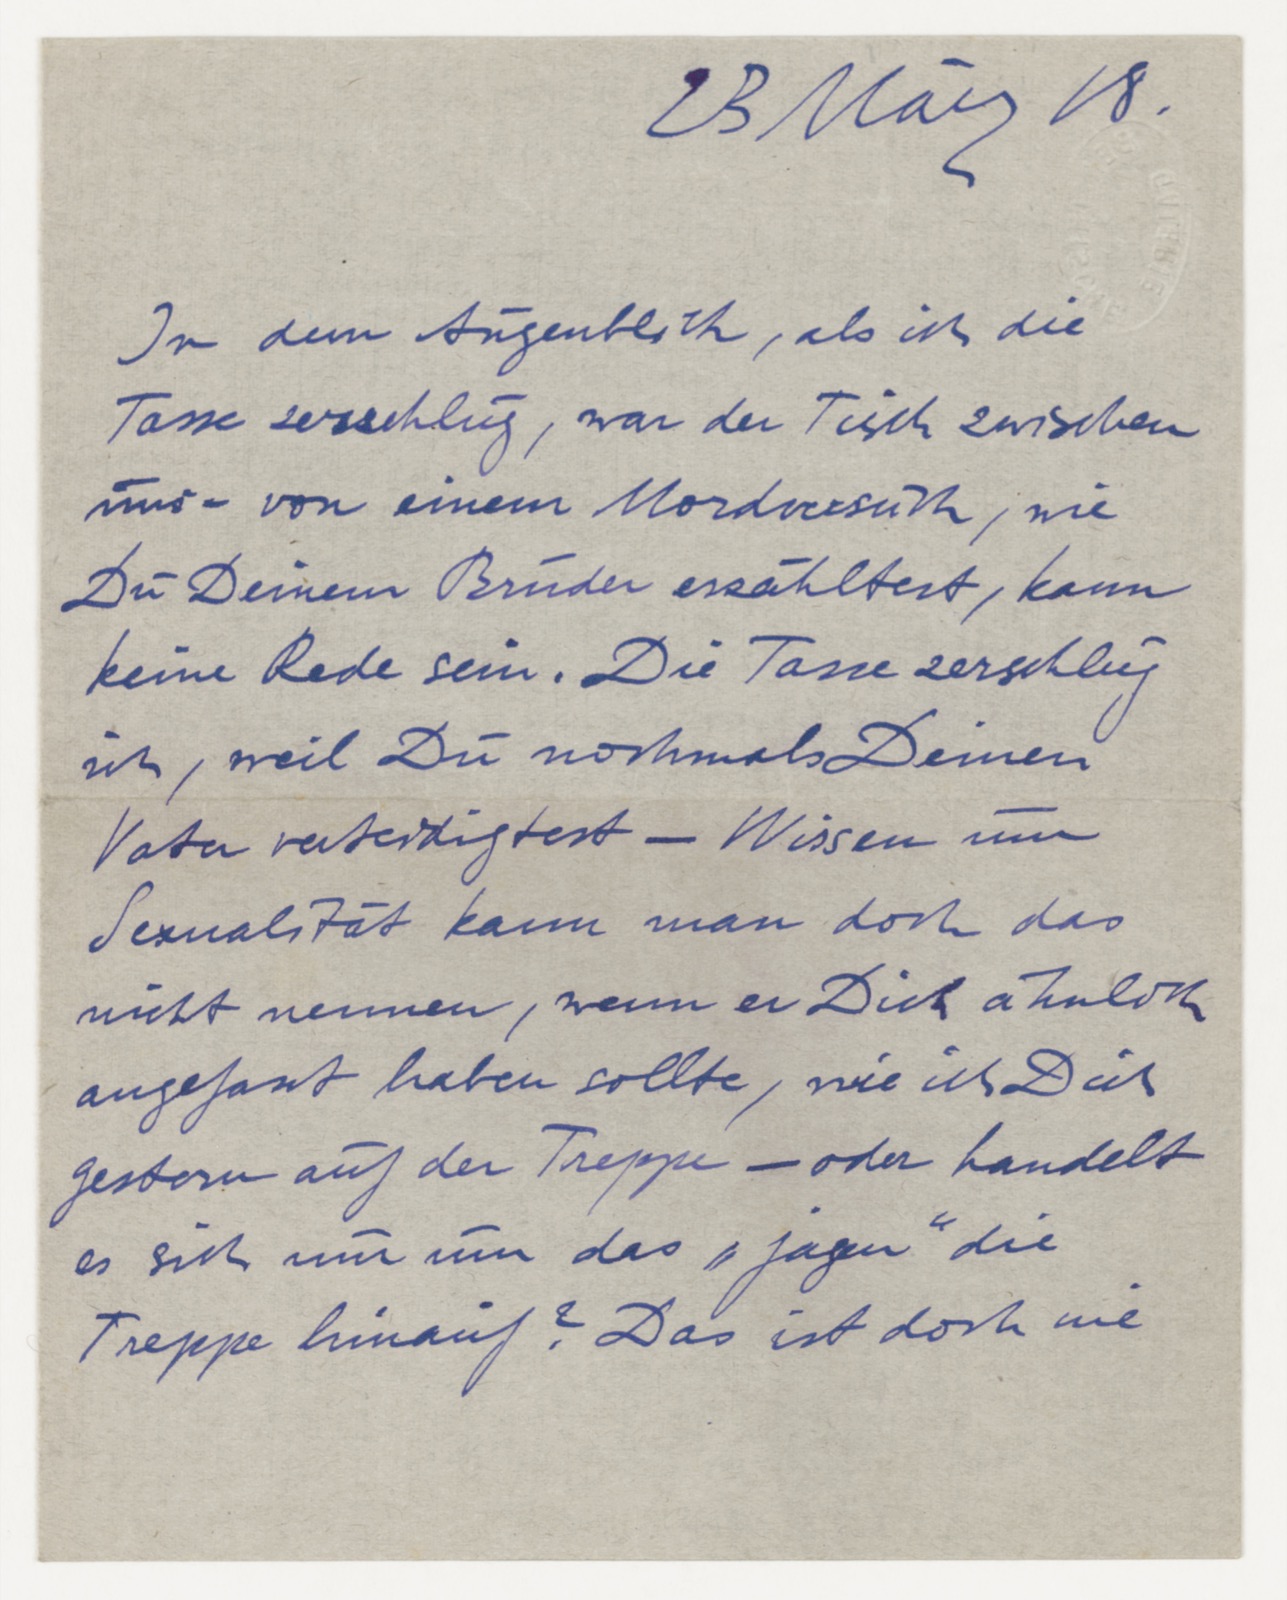 23 März 18.
In dem Augenblick, als ich die
Tasse zerschlug, war der Tisch zwischen
uns - von einem Mordversuch, wie
Du Deinem Bruder erzähltest, kann
keine Rede sein. Die Tasse zerschlug
ich, weil Du nochmals Deinen
Vater verteidigtest — Wissen um
Sexualität kann man doch das
nicht nennen, wenn er Dich ähnlich
angefasst haben sollte, wie ich Dich
gestern auf der Treppe — oder handelt
es sich nur um das „jagen“ die
Treppe hinauf? Das ist doch nie